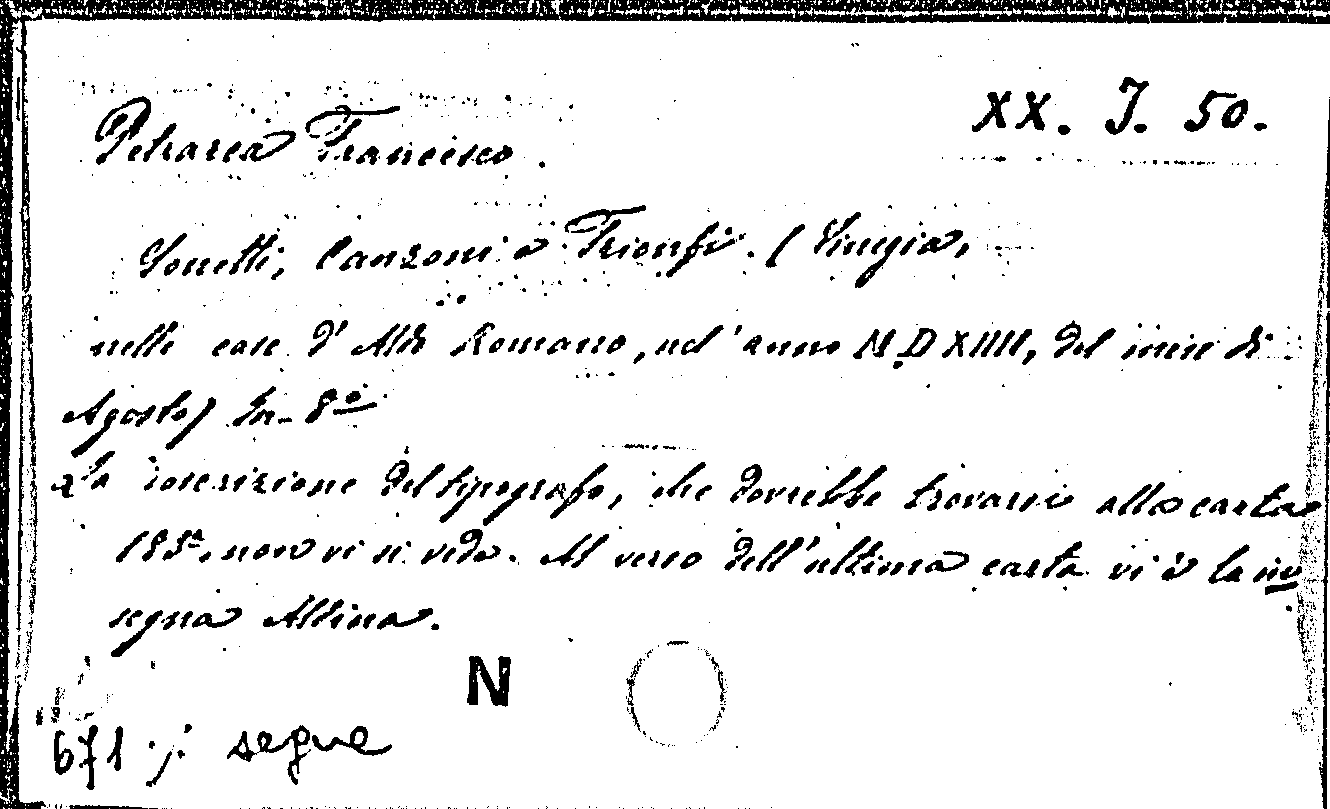 XX. J. 50.
Petrarca Francesco.
Sonetti, Canzoni e Trionfi. (Vinegia,
nelle case d'Aldo Romano, nel'anno M.DXIIII, del mese di
Agosto) In-8º
La iscrizione del tipografo, che dovrebbe trovarsi alla carta
183ª, non vi si vede. Al verso dell'ultima carta vi è la in
segna Aldina.
N
671 segue